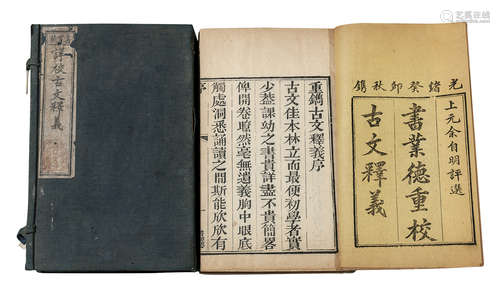 評校古文釋義
重鐫古文釋義序
古文佳本林立而最便初學者實
少葢課幼之書貴詳盡不貴簡畧
俾開卷瞭然毫無遺義胸中眼底
觸處洞悉誦讀之間斯能欣欣有
序
光緒癸卯秋鐫
上元余自明評選
書業德重校
古文釋義